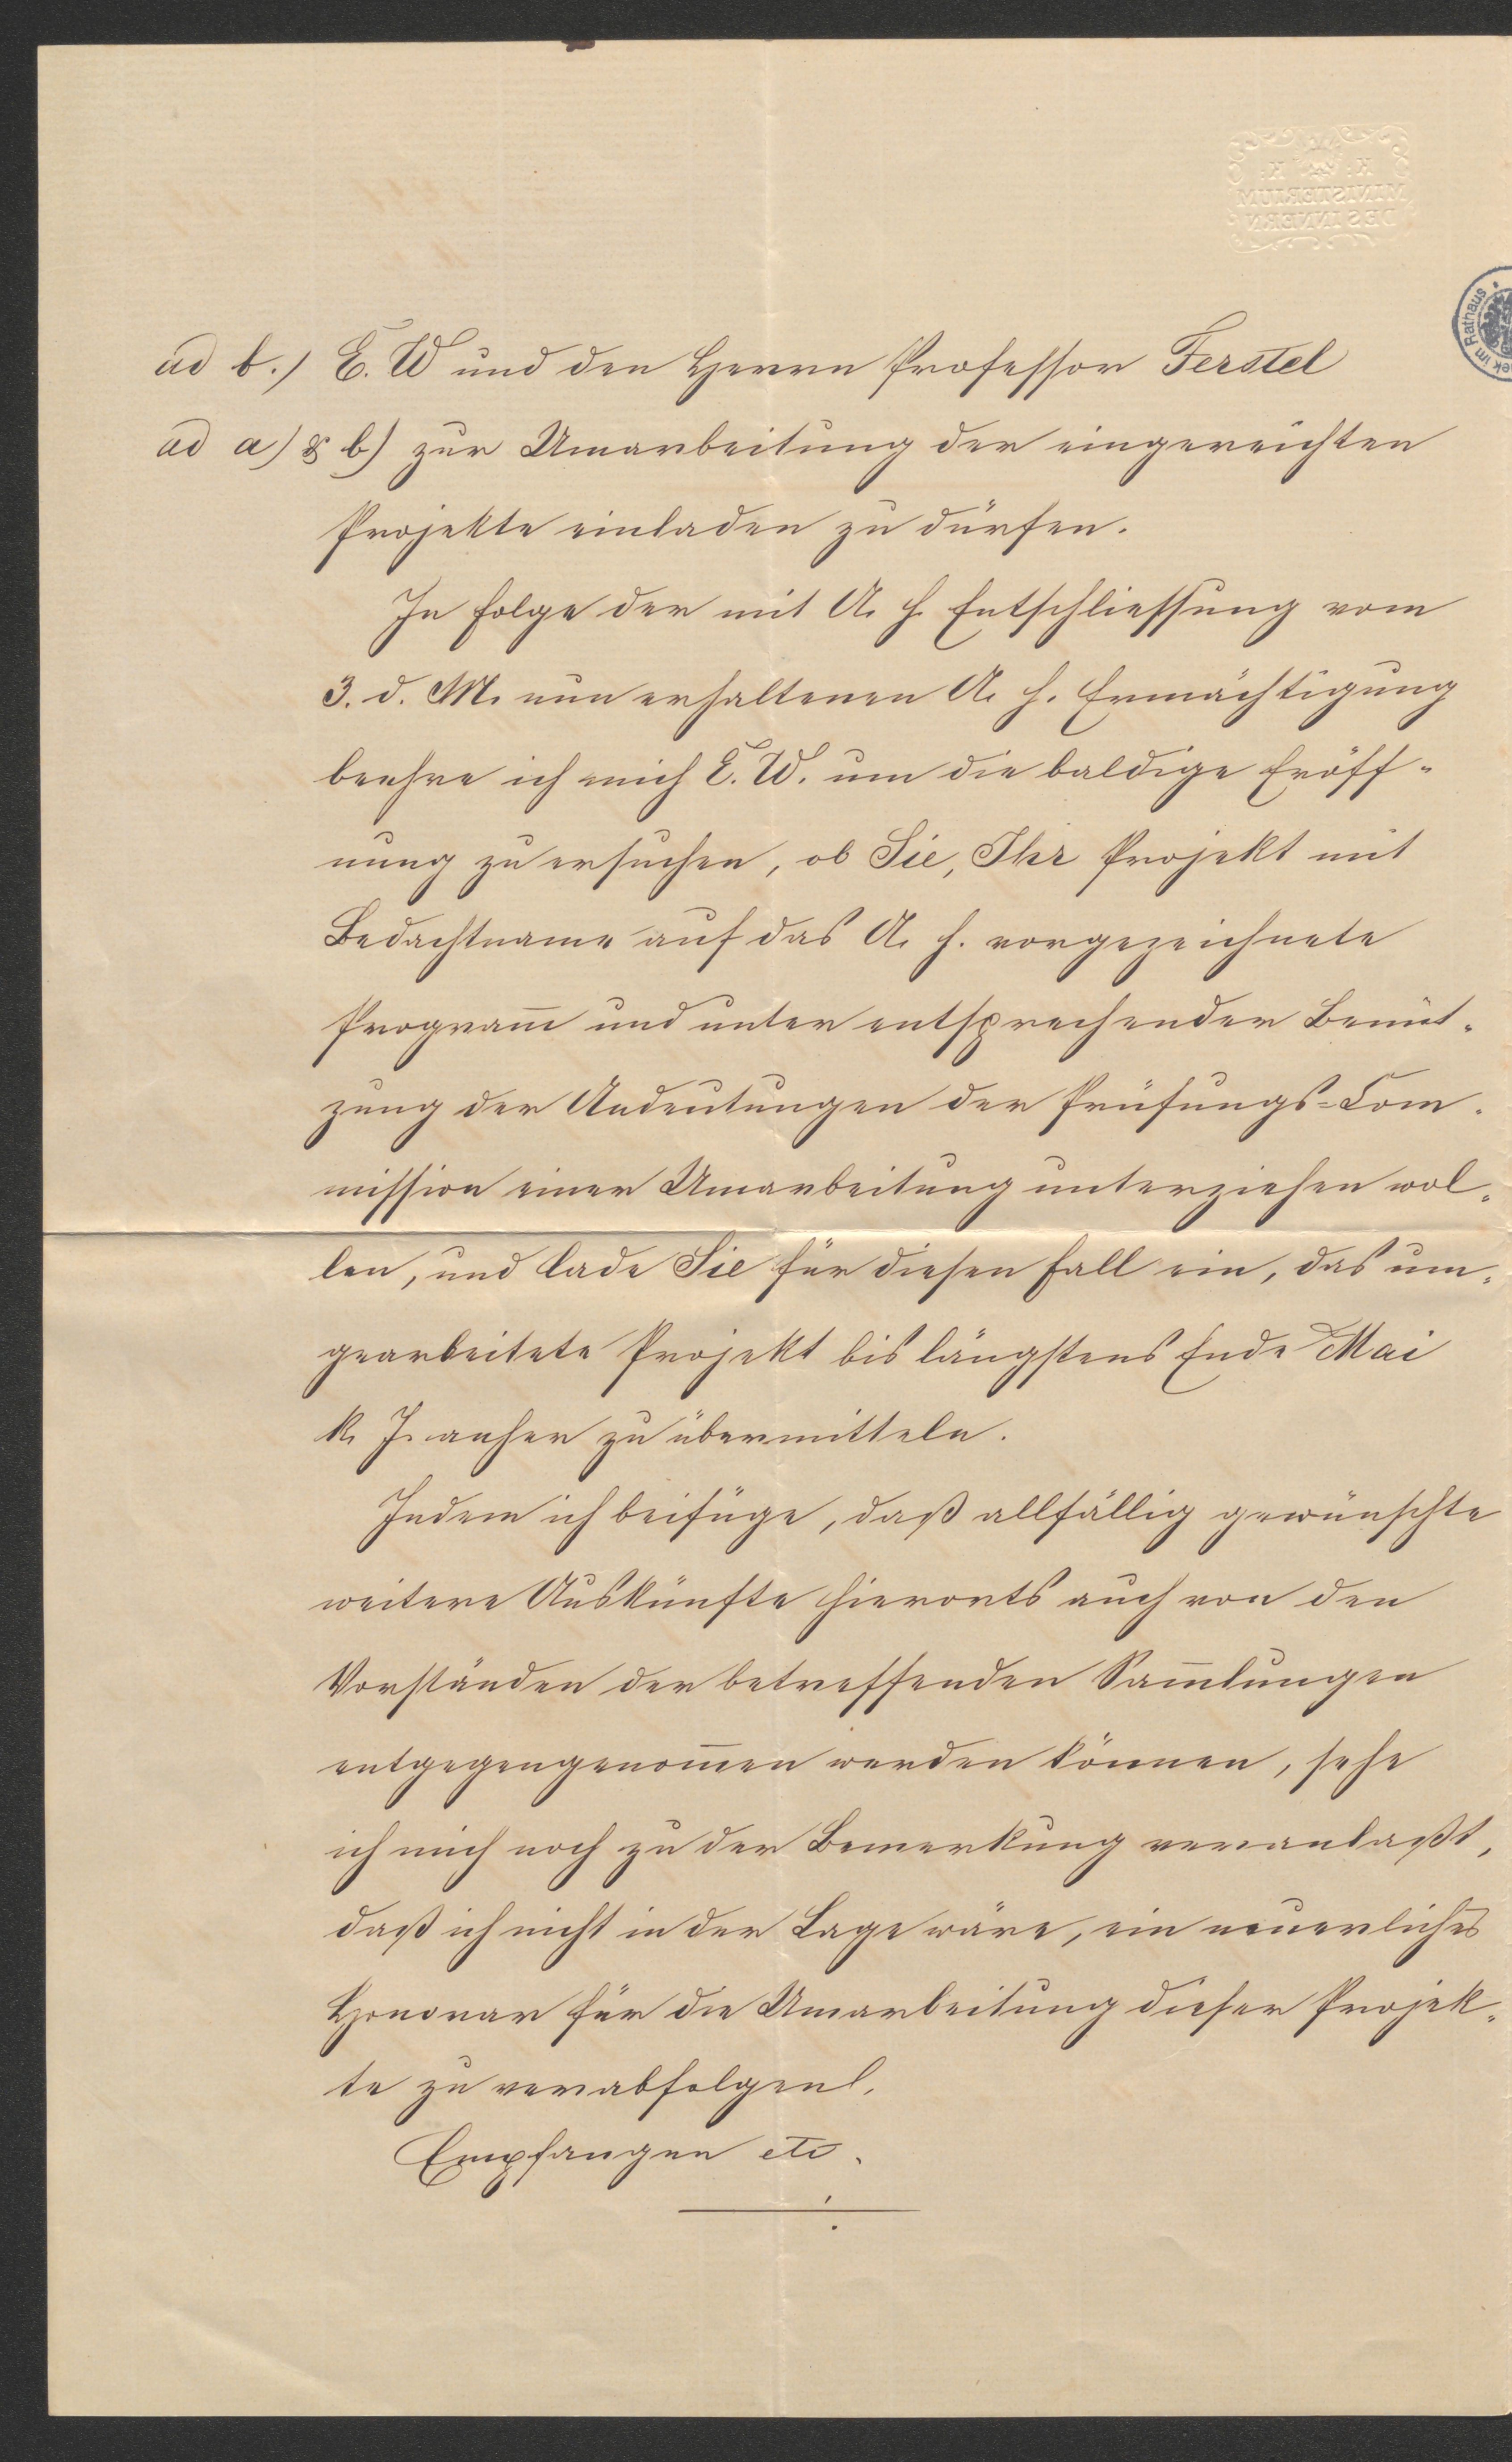 K. K.
MINISTERIUM
DES INNERN
im Rathaus
ad b.) E. W und den Herrn Professor Ferstel
ad a) & b) zur Umarbeitung der eingereichten
Projekte einladen zu dürfen.
In Folge der mit A. h. Entschliessung vom
3. d. M. nun erhaltenen A. h. Ermächtigung
beehre ich mich E. W. um die baldige Eröff-
nung zu ersuchen, ob Sie, Ihr Projekt mit
Bedachtname auf das A. h. vorgezeichnete
Program̅ und unter entsprechender Benüt-
zung der Andeutungen der Prüfungs-Com-
mission einer Umarbeitung unterziehen wol-
len, und lade Sie für diesen Fall ein, das um-
gearbeitete Projekt bis längstens Ende Mai
k. J. anher zu übermitteln.
Indem ich beifüge, daß allfällig gewünschte
weitere Auskünfte hierorts auch von den
Vorständen der betreffenden Sam̅lungen
entgegengenom̅en werden können, sehe
ich mich noch zu der Bemerkung veranlaßt,
daß ich nicht in der Lage wäre, ein neuerliches
Honorar für die Umarbeitung dieser Projek-
te zu verabfolgen.
Empfangen etc.